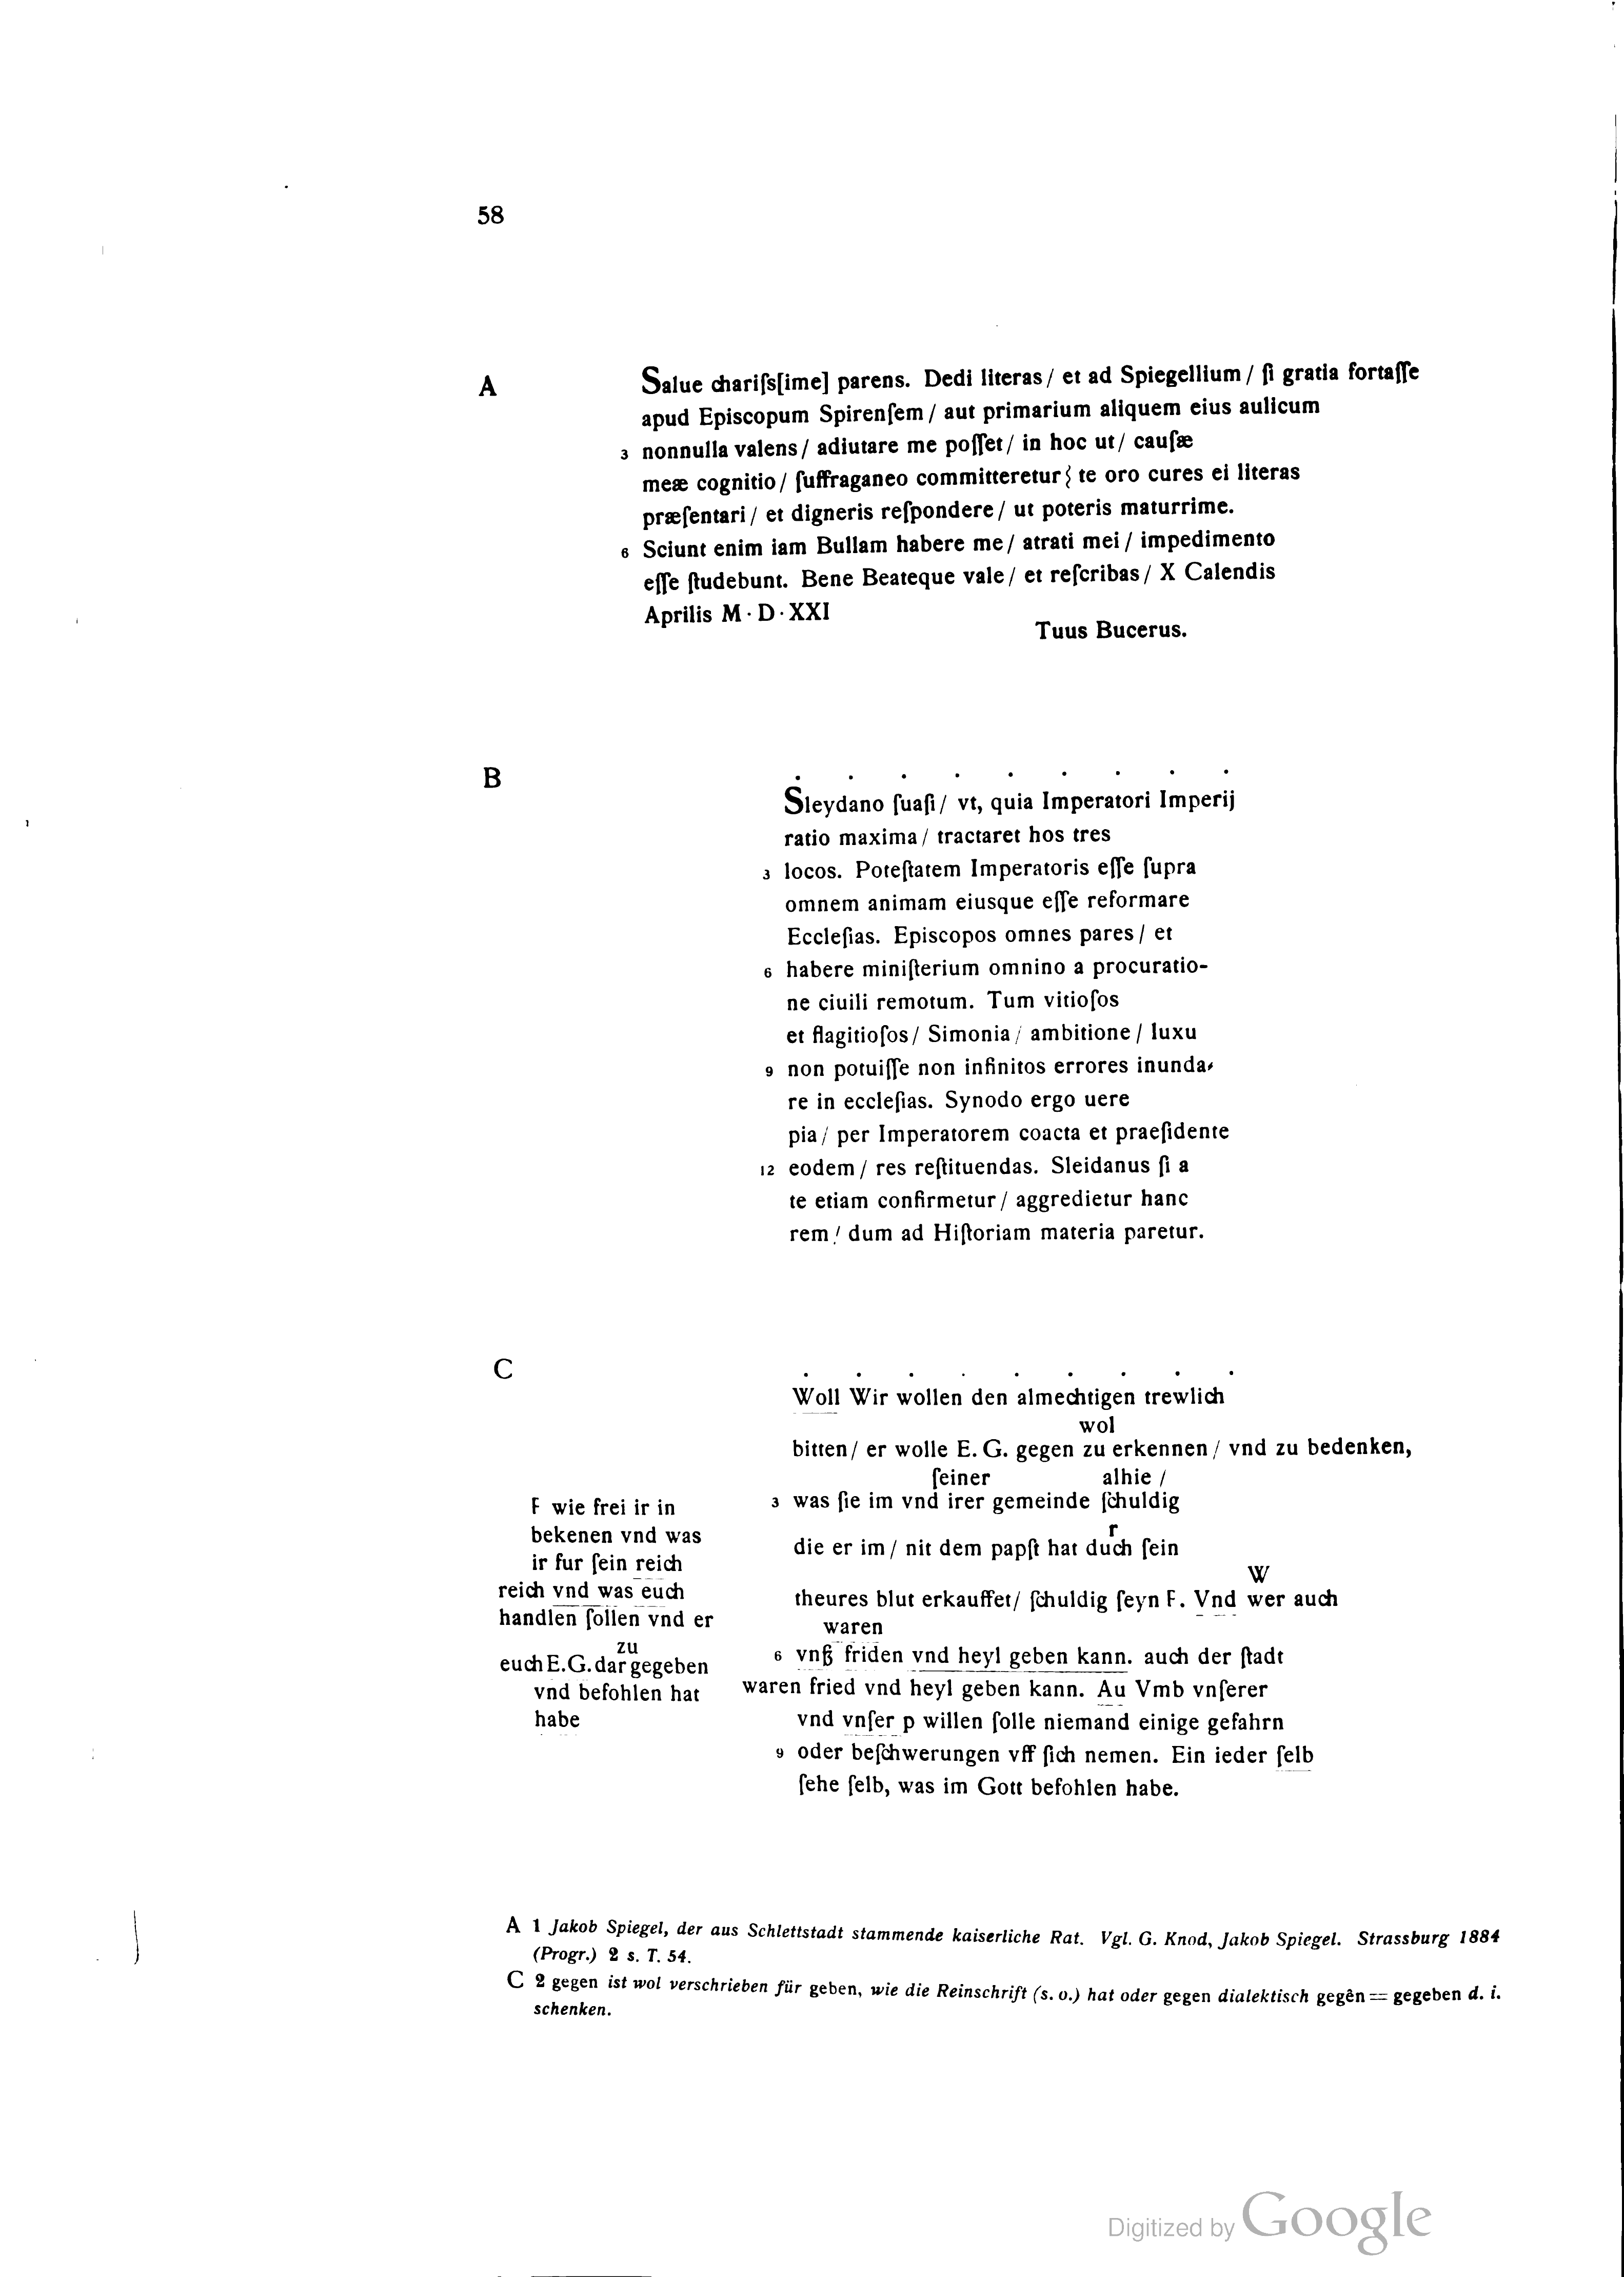 58
A
Salue chariſs[ime] parens. Dedi literas / et ad Spiegellium / ſi gratia fortaſſe
apud Episcopum Spirenſem / aut primarium aliquem eius aulicum
3 nonnulla valens / adiutare me poſſet / in hoc ut / cauſæ
meæ cognitio / ſuffraganeo committeretur ⁝ te oro cures ei literas
præſentari / et digneris reſpondere / ut poteris maturrime.
6 Sciunt enim iam Bullam habere me / atrati mei / impedimento
eſſe ſtudebunt. Bene Beateque vale / et reſcribas / X Calendis
Aprilis M · D · XXI
Tuus Bucerus.
B
. . . . . . . . .
Sleydano ſuaſi / vt, quia Imperatori Imperij
ratio maxima / tractaret hos tres
3 locos. Poteſtatem Imperatoris eſſe ſupra
omnem animam eiusque eſſe reformare
Eccleſias. Episcopos omnes pares / et
6 habere miniſterium omnino a procuratio-
ne ciuili remotum. Tum vitioſos
et flagitioſos / Simonia / ambitione / luxu
9 non potuiſſe non infinitos errores inunda⸗
re in eccleſias. Synodo ergo uere
pia / per Imperatorem coacta et praeſidente
12 eodem / res reſtituendas. Sleidanus ſi a
te etiam confirmetur / aggredietur hanc
rem / dum ad Hiſtoriam materia paretur.
C
. . . . . . . . .
Woll Wir wollen den almechtigen trewlich
wol
bitten / er wolle E. G. gegen zu erkennen / vnd zu bedenken,
ſeiner alhie /
3 was ſie im vnd irer gemeinde ſchuldig
r
die er im / nit dem papſt hat duch ſein
W
theures blut erkauffet / ſchuldig ſeyn F. Vnd wer auch
waren
6 vnß friden vnd heyl geben kann. auch der ſtadt
waren fried vnd heyl geben kann. Au Vmb vnſerer
vnd vnſer p willen ſolle niemand einige gefahrn
9 oder beſchwerungen vff ſich nemen. Ein ieder ſelb
ſehe ſelb, was im Gott befohlen habe.
F wie frei ir in
bekenen vnd was
ir fur ſein reich
reich vnd was euch
handlen ſollen vnd er
zu
euch E. G. dar gegeben
vnd befohlen hat
habe
A 1 Jakob Spiegel, der aus Schlettstadt stammende kaiserliche Rat. Vgl. G. Knod, Jakob Spiegel. Strassburg 1884
(Progr.) 2 s. T. 54.
C 2 gegen ist wol verschrieben für geben, wie die Reinschrift (s. o.) hat oder gegen dialektisch gegên = gegeben d. i.
schenken.
Digitized by Google